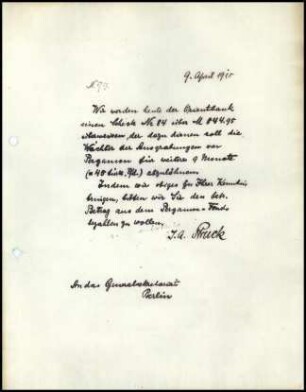 9. April 1915
Wir werden heute der Orientbank
einen Scheck No. 84 über M 844.95
der dazu dienen soll die
Wächter der Ausgrabungen von
Pergamon für weitere 9 Monate
abzulöhnen
Indem wir obiges zu Ihrer Kenntnis
bringen, bitten wir Sie den betr.
Betrag aus dem Pergamon-Fonds
bezahlen zu wollen.
I. A. Struck
An das Generalsekretariat
Berlin